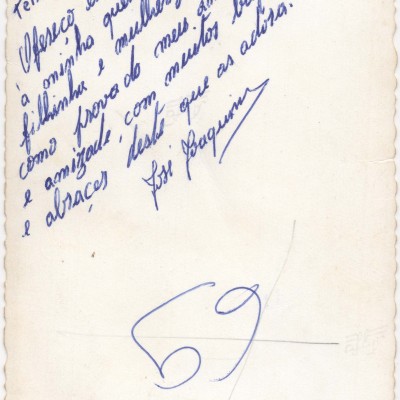 Ofereço e
á minha que
filhinha e mulher
como prova do meu am
e amizade, com muitos b
e abraços deste que as adora.
José Joaquim
69